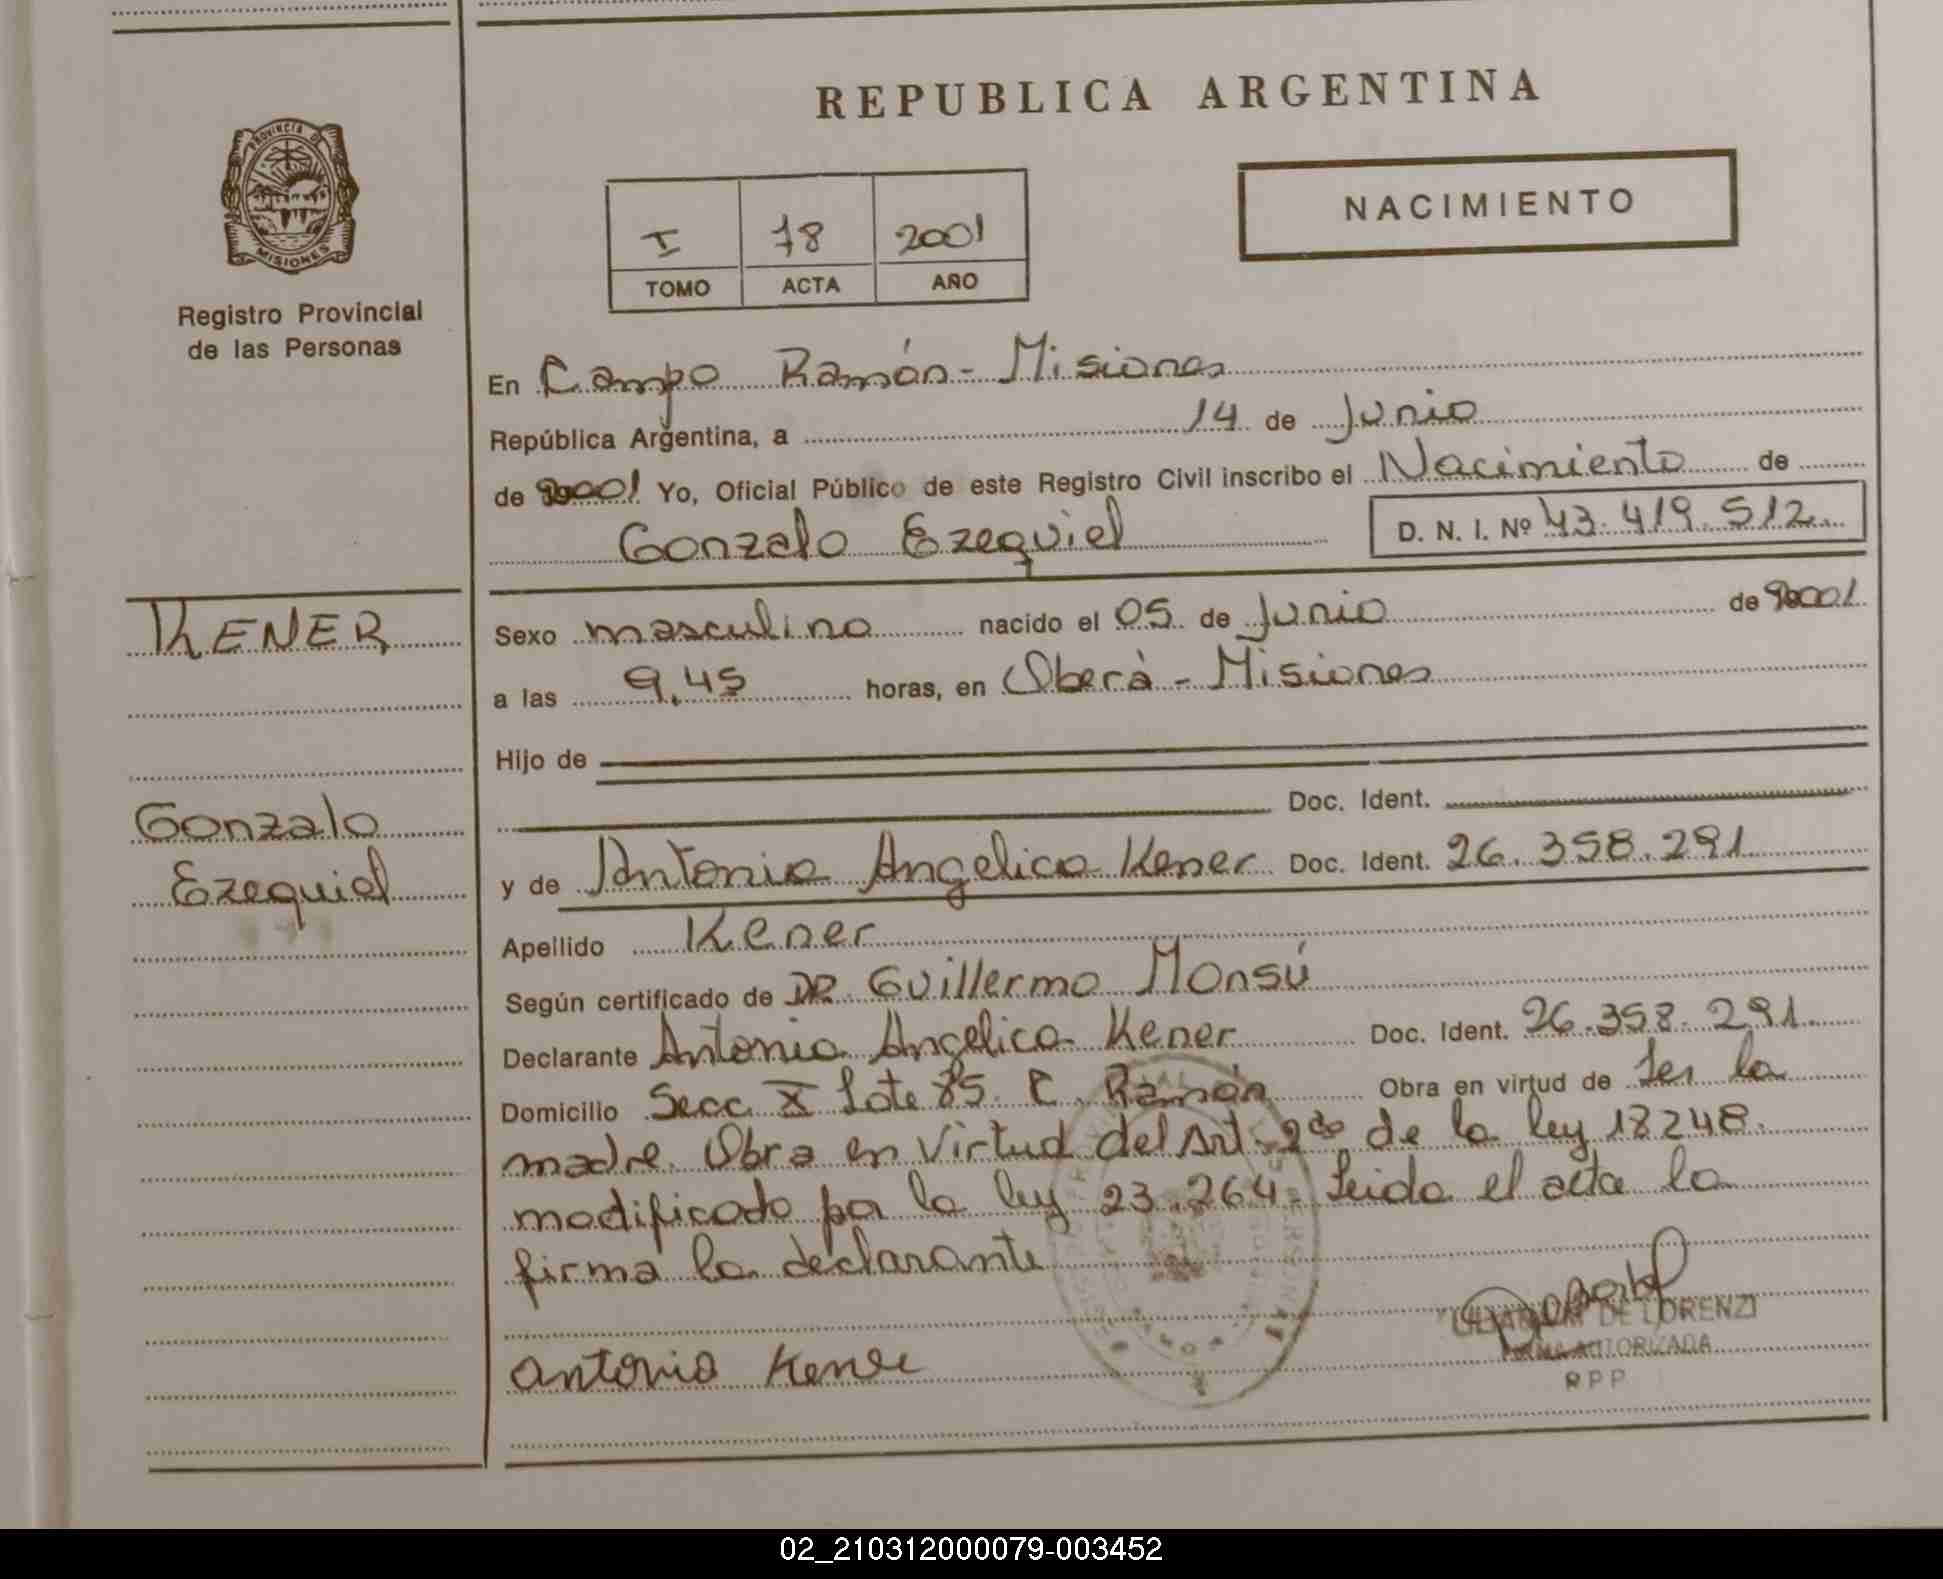 REPUBLICA ARGENTINA
PROVINCIA DE
MISIONES
Registro Provincial
de las Personas
I 78 2001
TOMO ACTA AÑO
NACIMIENTO
En Campo Ramón - Misiones
República Argentina, a 14 de Junio
de 2001 Yo, Oficial Público de este Registro Civil inscribo el Nacimiento de
Gonzalo Ezequiel D. N. I. Nº 43.419.512
KENER
Gonzalo
Ezequiel
Sexo masculino nacido el 05 de Junio de 2001
a las 9,45 horas, en Oberá - Misiones
Hijo de
Doc. Ident.
y de Antonia Angelica Kener Doc. Ident. 26.358.291
Apellido Kener
Según certificado de DR Guillermo Monsú
Declarante Antonia Angelica Kener Doc. Ident. 26.358.291
Domicilio Secc X Lote 85 C. Ramón Obra en virtud de Ser la
madre. Obra en virtud del Art. 2do de la ley 18248
modificado por la ley 23.264. Leida el acta la
firma la declarante
Antonia Kener
LILIANA M DE LORENZI
FIRMA AUTORIZADA
RPP
02_210312000079-003452